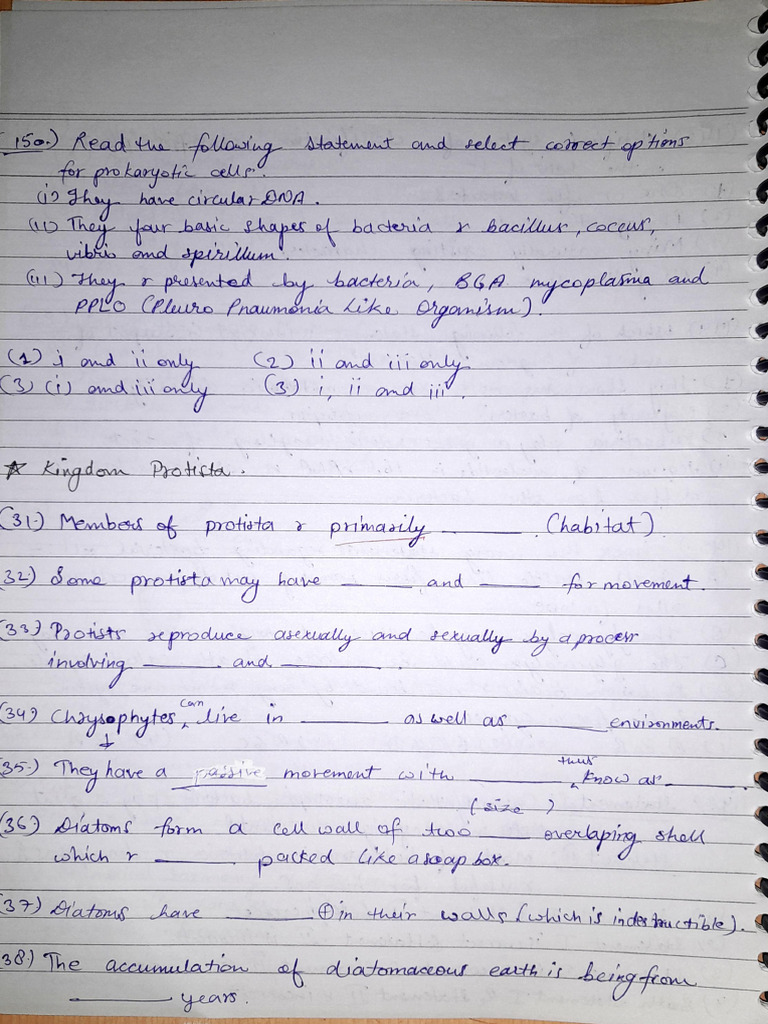 (150.) Read the following statement and select correct options
for prokaryotic cells.
(i) They have circular DNA.
(ii) They four basic shapes of bacteria r bacillus, coccus,
vibrio and spirillum.
(iii) They r presented by bacteria, BGA mycoplasma and
PPLO (Pleuro Pnaumonia Like Organism).
(1) i and ii only (2) ii and iii only.
(3) (i) and iii only (3) i, ii and iii.
☆ Kingdom Protista.
(31.) Members of protista r primarily ______. (habitat)
(32) Some protista may have ______ and ______ for movement.
(33.) Protists reproduce asexually and sexually by a process
involving ______ and ______.
(34) Chrysophytes can live in ______ as well as ______ environments.
↓
(35.) They have a passive movement with ______ thus know as ______.
(size)
(36) Diatoms form a cell wall of two ______ overlaping shell
which r ______ packed like a soap box.
(37) Diatoms have ______ ⊕ in their walls (which is indestructible).
(38.) The accumulation of diatomaceous earth is being from
______ years.